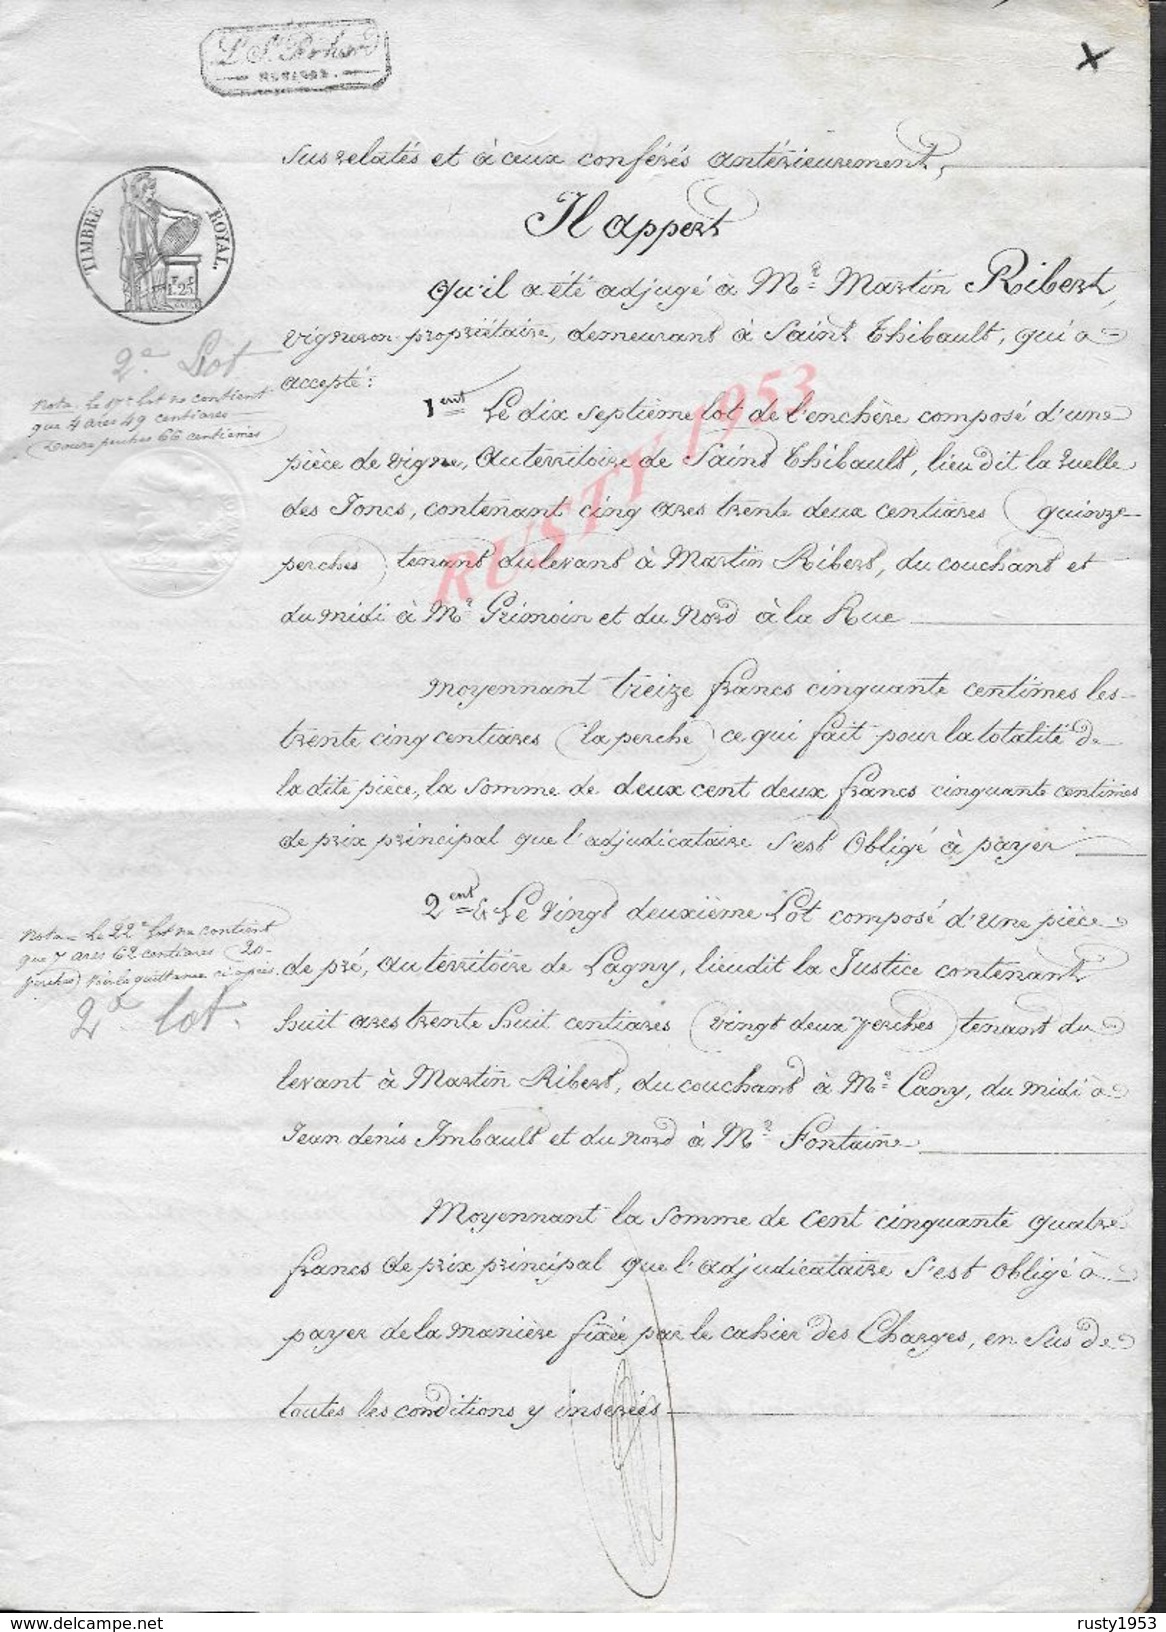 TIMBRE ROYAL.
1F 25C
susrelatés et à ceux conférés antérieurement,
Il appert
qu'il a été adjugé à Mr Martin Ribert,
vigneron propriétaire, demeurant à Saint Thibault, qui a
accepté:
2e Lot
Nota. Le 17e lot ne contient
que 4 ares 49 centiares
douze perches 66 centièmes
1ent Le dix septième lot de l'enchère composé d'une
pièce de vigne, au territoire de Saint Thibault, lieu dit la ruelle
des Joncs, contenant cinq ares trente deux centiares (quinze
perches) tenant du levant à Martin Ribert, du couchant et
du midi à Mr Grimoin et du Nord à la Rue
moyennant treize francs cinquante centimes les
trente cinq centiares (la perche) ce qui fait pour la totalité de
la dite pièce, la somme de deux cent deux francs cinquante centimes
de prix principal que l'adjudicataire s'est obligé à payer
2ent & Le vingt deuxième Lot composé d'une pièce
Nota Le 22e Lot ne contient
que 7 ares 62 centiares (20
perches) voir la quittance ci après
2e lot.
de pré, au territoire de Lagny, lieudit la Justice contenant
huit ares trente huit centiares (vingt deux perches) tenant du
levant à Martin Ribert, du couchant à Mr Cany, du midi à
Jean denis Imbault et du nord à Mr Fontaine
Moyennant la somme de cent cinquante quatre
francs de prix principal que l'adjudicataire s'est obligé à
payer de la manière fixée par le cahier des Charges, en sus de
toutes les conditions y insérées
RUSTY 1953
www.delcampe.net
rusty1953